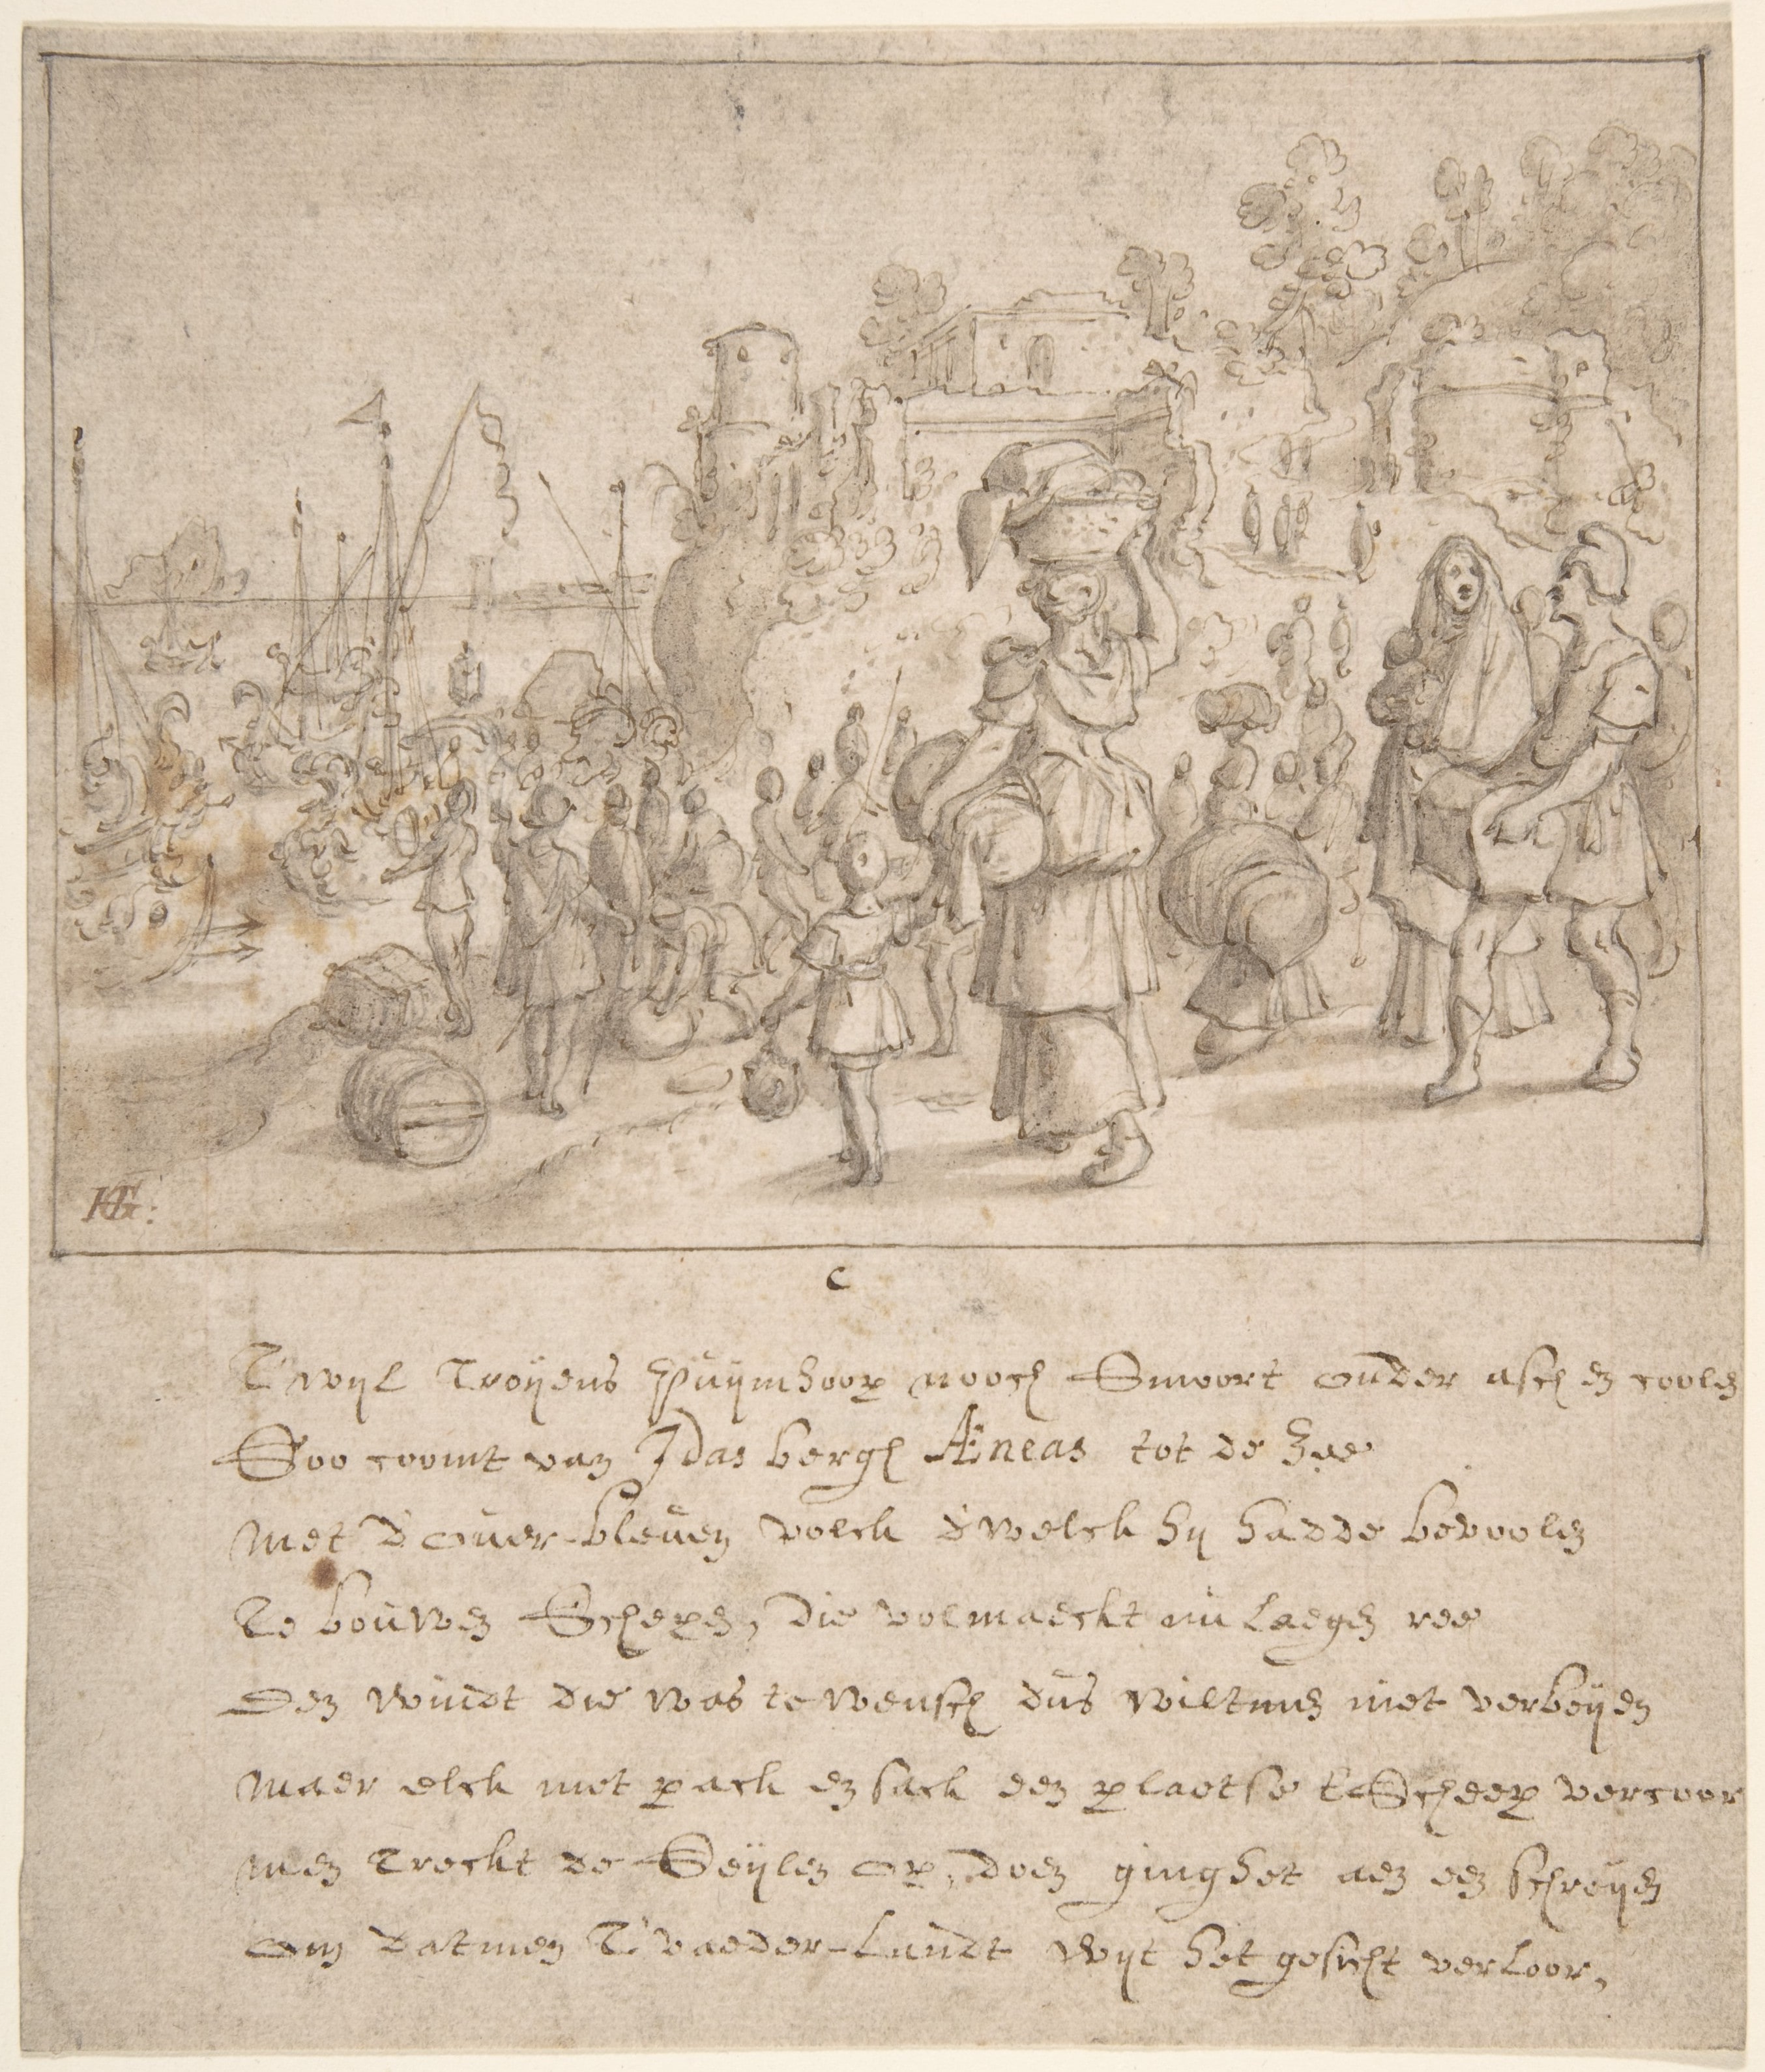 HG:
C
T'wyl Troijens Puijmhoop nooch Smoort onder asch en coolen
Soo coomt van Idas bergh Æneas tot de Zee
Met d'over-bleven volck d'welck hy hadde bevoolen
Te bouwen Schepen, die volmaeckt nu laegen ree
Den windt die was te wensch dus wiltmen niet verbeijen
Maer elck met pack en sack een plaetse t'Scheep vercoor
Men Treckt de Seijlen op, doen ginghet aen een schreijen
Om datmen T'vaeder-Landt wyt het gesicht verloor,